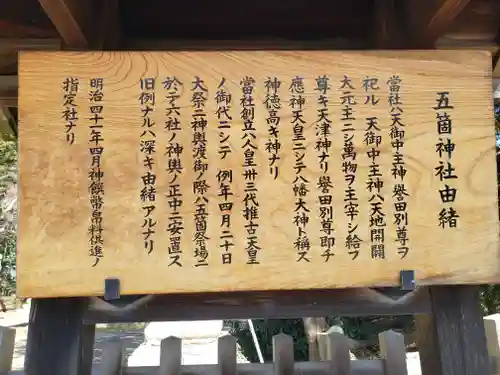 五箇神社由緒
当社ハ天御中主神 誉田別尊ヲ
祀ル 天御中主神ハ天地開闢
大元主ニシ萬物ヲ主宰シ給フ
尊キ天津神ナリ 誉田別尊即チ
應神天皇ニシテ八幡大神ト稱ス
神徳高キ神ナリ
當社創立ハ人皇卅三代推古天皇
ノ御代ニシテ 例年四月二十日
大祭ニ神輿渡御ノ際ハ五箇祭場ニ
於テ六社ノ神輿ノ正中ニ安置ス
旧例ナルハ深キ由緒アルナリ
明治四十一年四月神饌幣帛料供進ノ
指定社ナリ